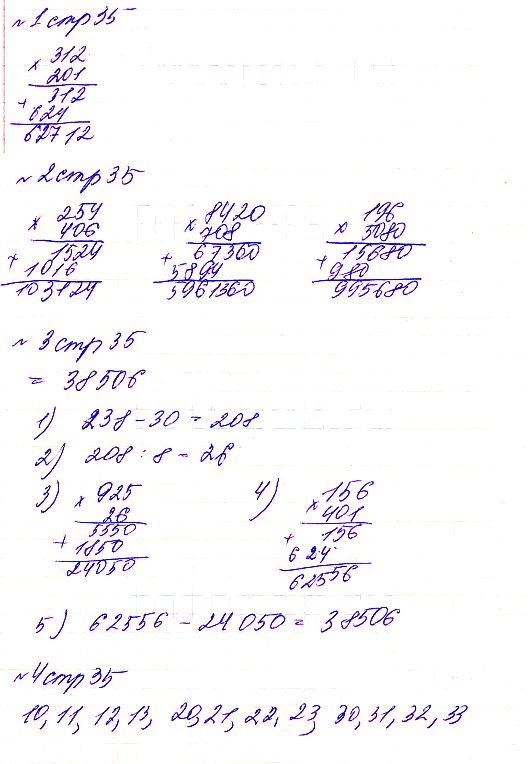 №1 стр 35
× 312
201
+ 312
624
62712
№2 стр 35
× 254 × 8420 × 196
406 708 5080
+ 1524 + 67360 + 15680
1016 5894 980
103124 5961360 995680
№ 3 стр 35
= 38506
1) 238 - 30 = 208
2) 208 : 8 = 26
3) × 925 4) × 156
26 401
+ 5550 + 156
1850 624
24050 62556
5) 62556 - 24050 = 38506
№4 стр 35
10, 11, 12, 13, 20, 21, 22, 23, 30, 31, 32, 33